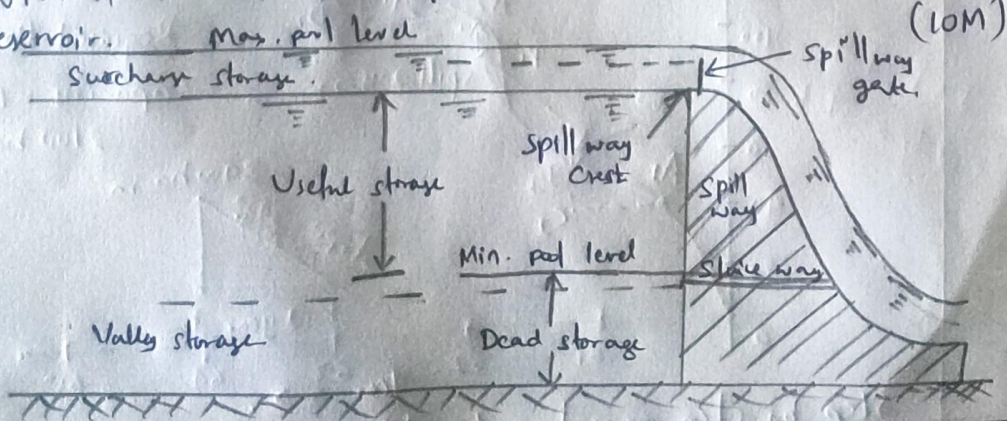 (10M)
eservoir.
Max. pool level
Surcharge storage.
Spillway
gate,
Spill way
Crest
Useful storage
Spill
way
Min. pool level
Sluice way
Valley storage
Dead storage